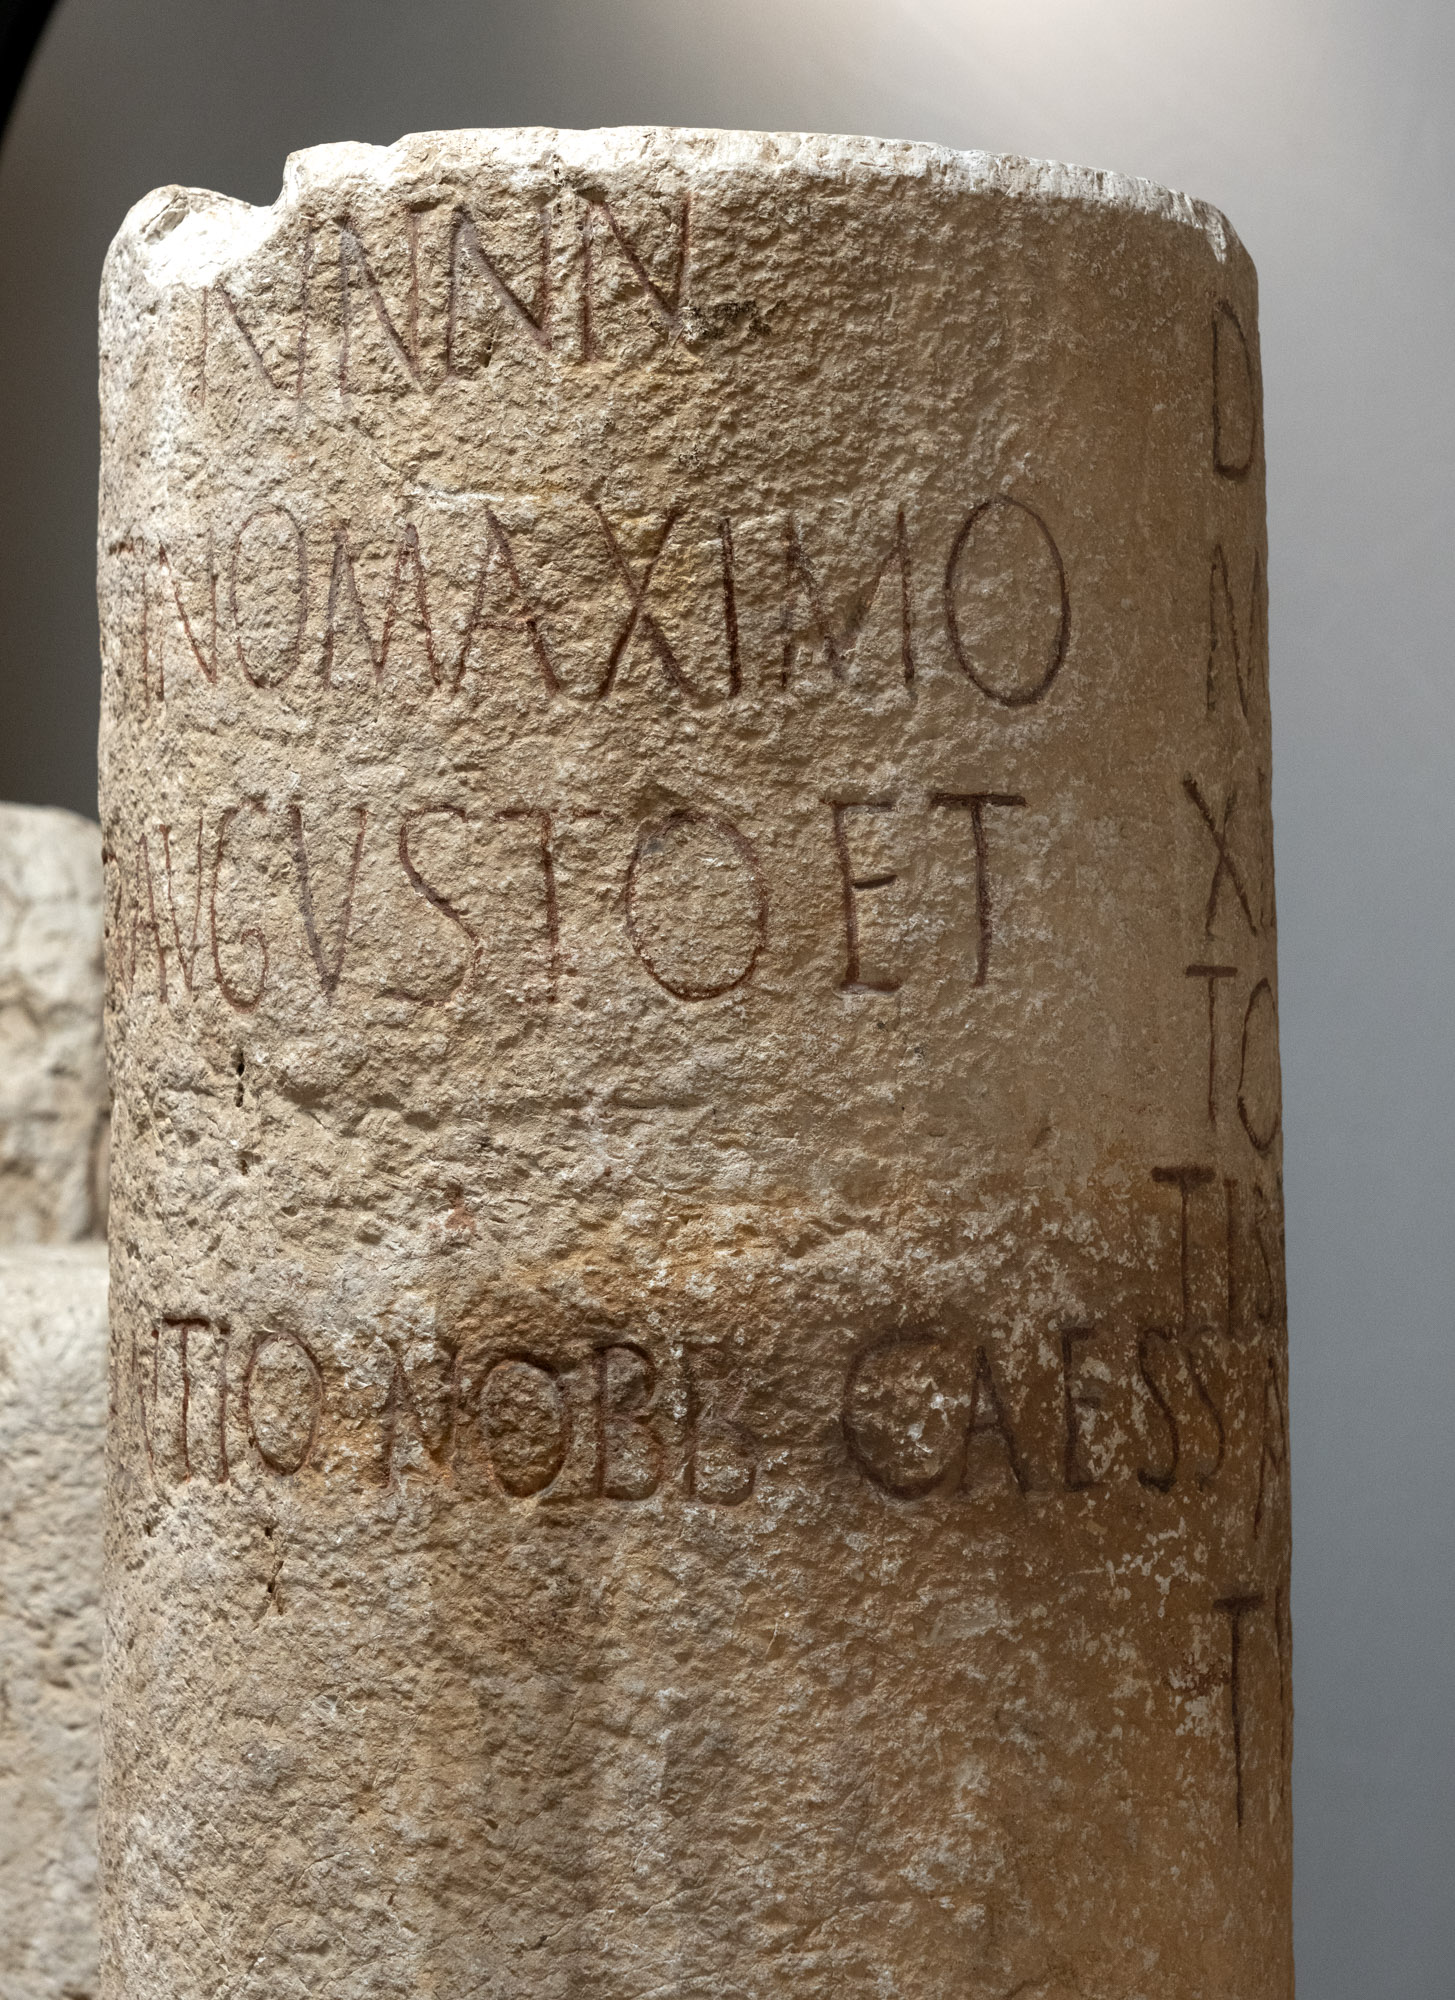 NNNN
NOMAXIMO
AVGVSTO ET
NTIO NOBB CAESS
D
N
X
TO
TIS
A
T